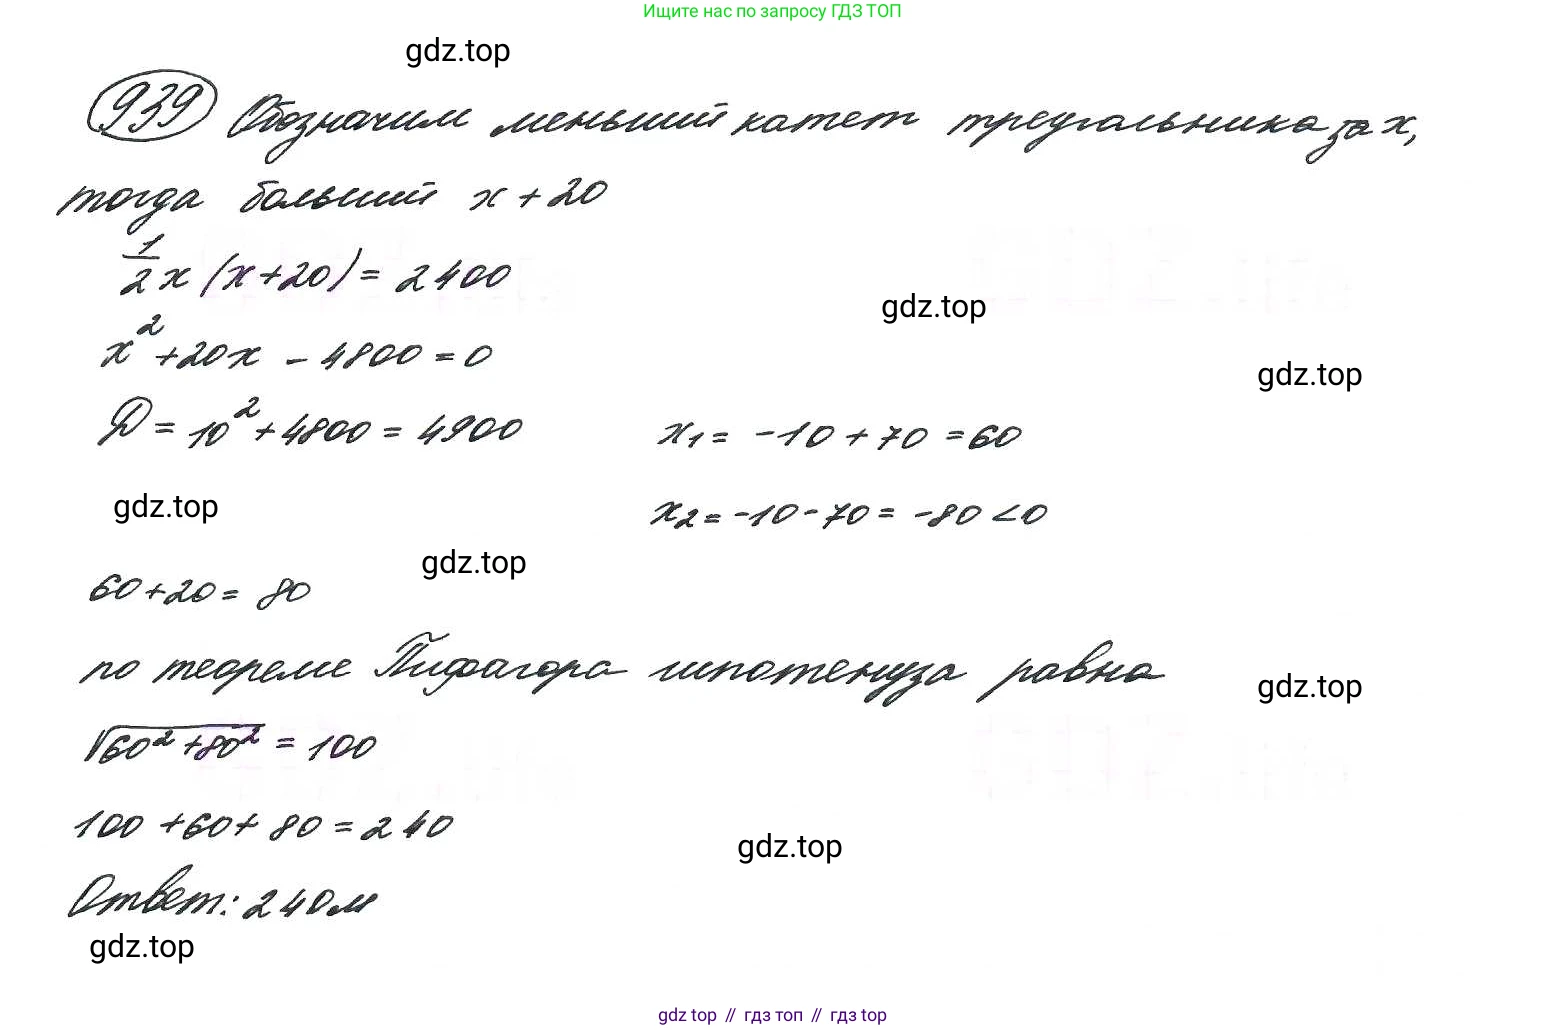 Ищите нас по запросу ГДЗ ТОП
gdz.top
939 Обозначим меньший катет треугольника за x,
тогда больший x + 20
1/2 x (x+20) = 2400
gdz.top
x² + 20x - 4800 = 0
gdz.top
D = 10² + 4800 = 4900 x₁ = -10 + 70 = 60
gdz.top
x₂ = -10 - 70 = -80 < 0
gdz.top
60 + 20 = 80
по теореме Пифагора гипотенуза равна
gdz.top
√60² + 80² = 100
100 + 60 + 80 = 240
gdz.top
Ответ: 240м
gdz.top
gdz top // гдз топ // гдз top